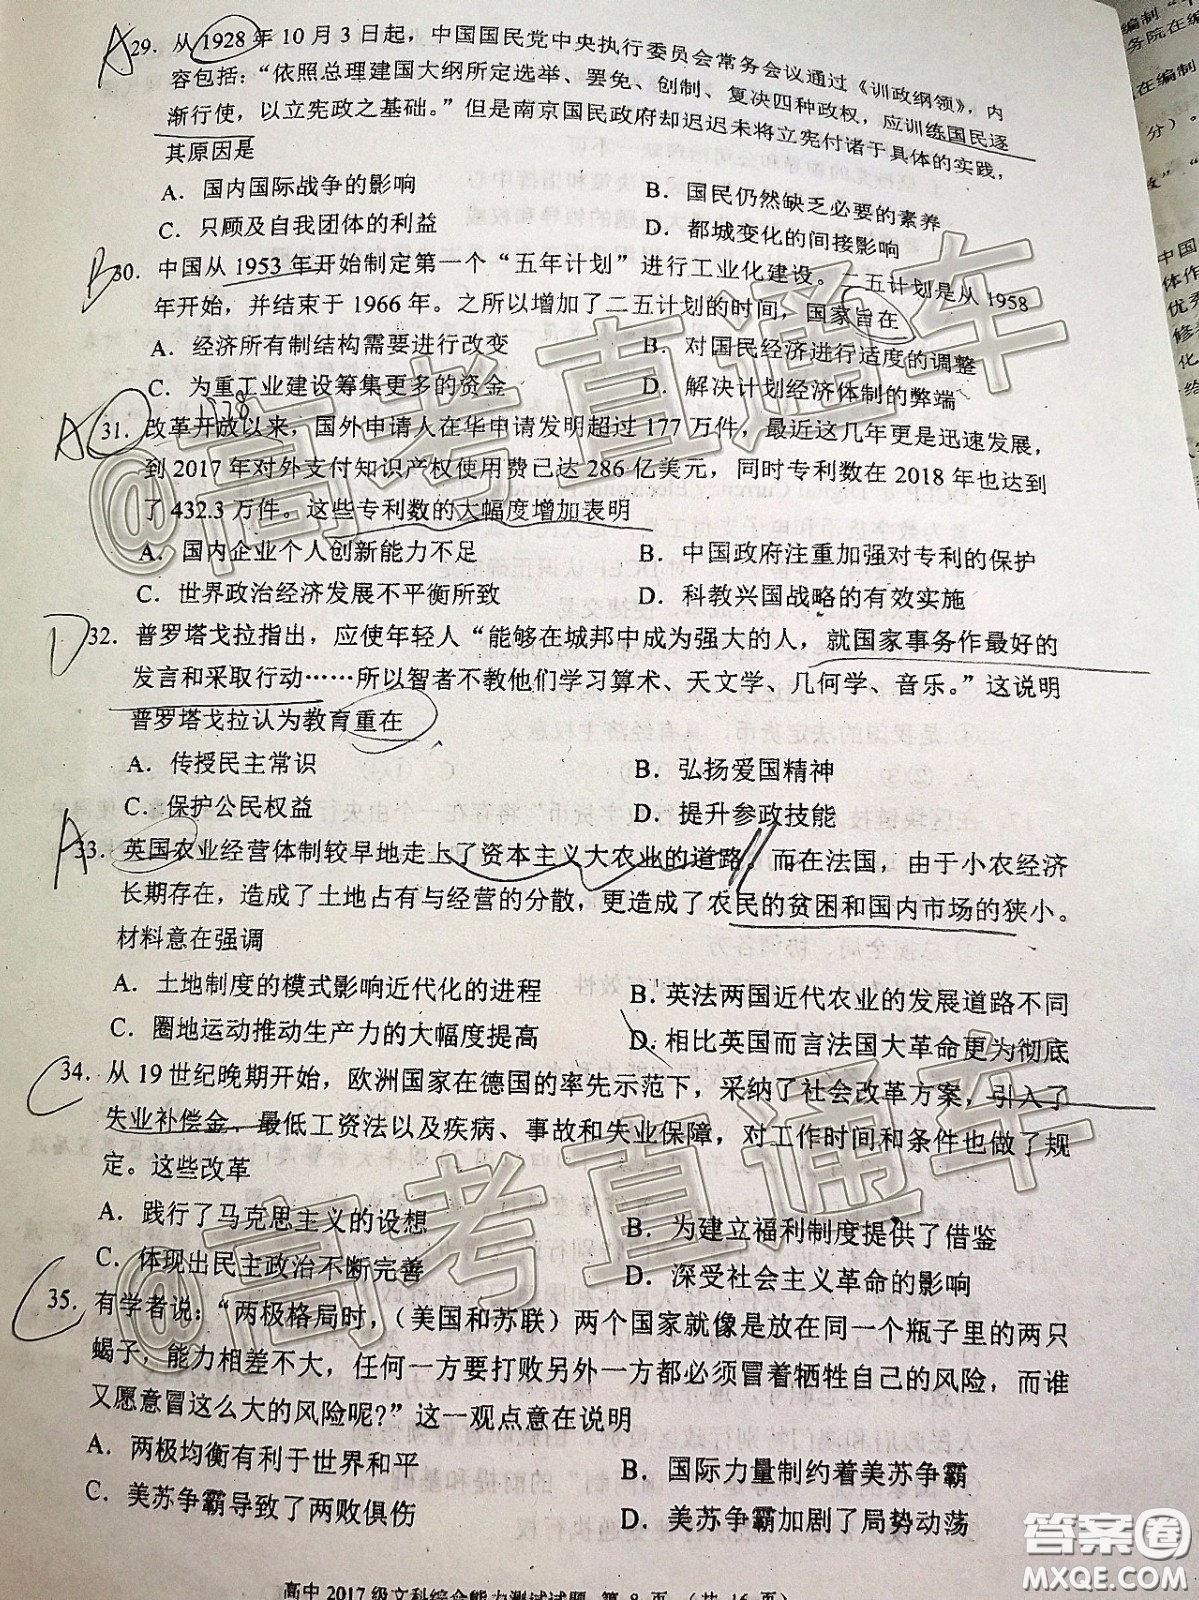 29. 从1928年10月3日起，中国国民党中央执行委员会常务会议通过《训政纲领》，内
容包括：“依照总理建国大纲所定选举、罢免、创制、复决四种政权，应训练国民逐
渐行使，以立宪政之基础。”但是南京国民政府却迟迟未将立宪付诸于具体的实践，
其原因是
A. 国内国际战争的影响 B. 国民仍然缺乏必要的素养
C. 只顾及自我团体的利益 D. 都城变化的间接影响
30. 中国从1953年开始制定第一个“五年计划”进行工业化建设。二五计划是从1958
年开始，并结束于1966年。之所以增加了二五计划的时间，国家旨在
A. 经济所有制结构需要进行改变 B. 对国民经济进行适度的调整
C. 为重工业建设筹集更多的资金 D. 解决计划经济体制的弊端
31. 改革开放以来，国外申请人在华申请发明超过177万件，最近这几年更是迅速发展，
到2017年对外支付知识产权使用费已达286亿美元，同时专利数在2018年也达到
了432.3万件。这些专利数的大幅度增加表明
A. 国内企业个人创新能力不足 B. 中国政府注重加强对专利的保护
C. 世界政治经济发展不平衡所致 D. 科教兴国战略的有效实施
32. 普罗塔戈拉指出，应使年轻人“能够在城邦中成为强大的人，就国家事务作最好的
发言和采取行动……所以智者不教他们学习算术、天文学、几何学、音乐。”这说明
普罗塔戈拉认为教育重在
A. 传授民主常识 B. 弘扬爱国精神
C. 保护公民权益 D. 提升参政技能
33. 英国农业经营体制较早地走上了资本主义大农业的道路。而在法国，由于小农经济
长期存在，造成了土地占有与经营的分散，更造成了农民的贫困和国内市场的狭小。
材料意在强调
A. 土地制度的模式影响近代化的进程 B. 英法两国近代农业的发展道路不同
C. 圈地运动推动生产力的大幅度提高 D. 相比英国而言法国大革命更为彻底
34. 从19世纪晚期开始，欧洲国家在德国的率先示范下，采纳了社会改革方案，引入了
失业补偿金、最低工资法以及疾病、事故和失业保障，对工作时间和条件也做了规
定。这些改革
A. 践行了马克思主义的设想 B. 为建立福利制度提供了借鉴
C. 体现出民主政治不断完善 D. 深受社会主义革命的影响
35. 有学者说：“两极格局时，（美国和苏联）两个国家就像是放在同一个瓶子里的两只
蝎子，能力相差不大，任何一方要打败另外一方都必须冒着牺牲自己的风险，而谁
又愿意冒这么大的风险呢?”这一观点意在说明
A. 两极均衡有利于世界和平 B. 国际力量制约着美苏争霸
C. 美苏争霸导致了两败俱伤 D. 美苏争霸加剧了局势动荡
高中2017级文科综合能力测试试题 第8页 （共16页）
@高考直通车
@高考直通车
答案圈
MXQE.COM